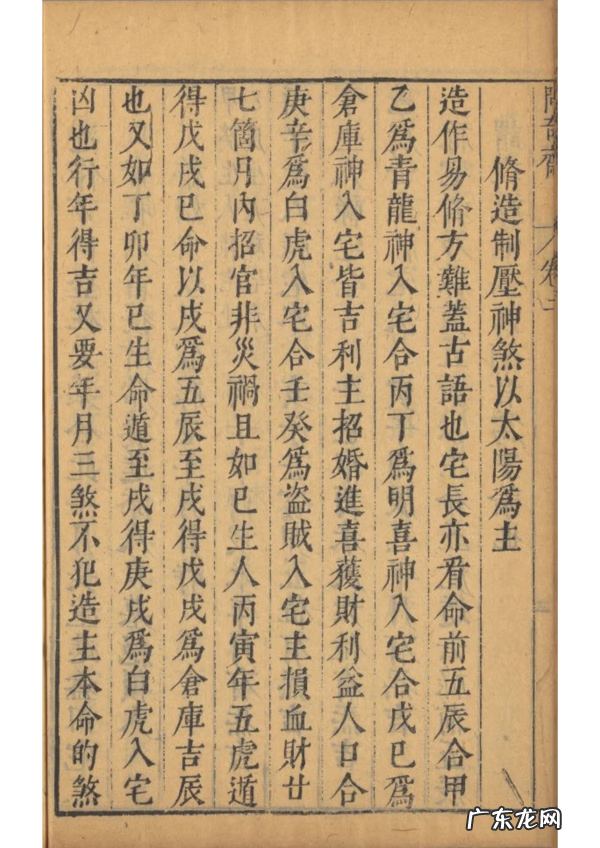 脩造制壓神煞以太陽爲主
造作易脩方難蓋古語也宅長亦看命前五辰合甲
乙爲青龍神入宅合丙丁爲明喜神入宅合戊巳爲
倉庫神入宅皆吉利主招婚進喜獲財利益人口合
庚辛爲白虎入宅合壬癸爲盜賊入宅主損血財廿
七箇月內招官非災禍且如巳生人丙寅年五虎遁
得戊戌巳命以戌爲五辰至戌得戊戌爲倉庫吉辰
也又如丁卯年巳生命遁至戌得庚戌爲白虎入宅
凶也行年得吉又要年月三煞不犯造主本命的煞
廣东龙网